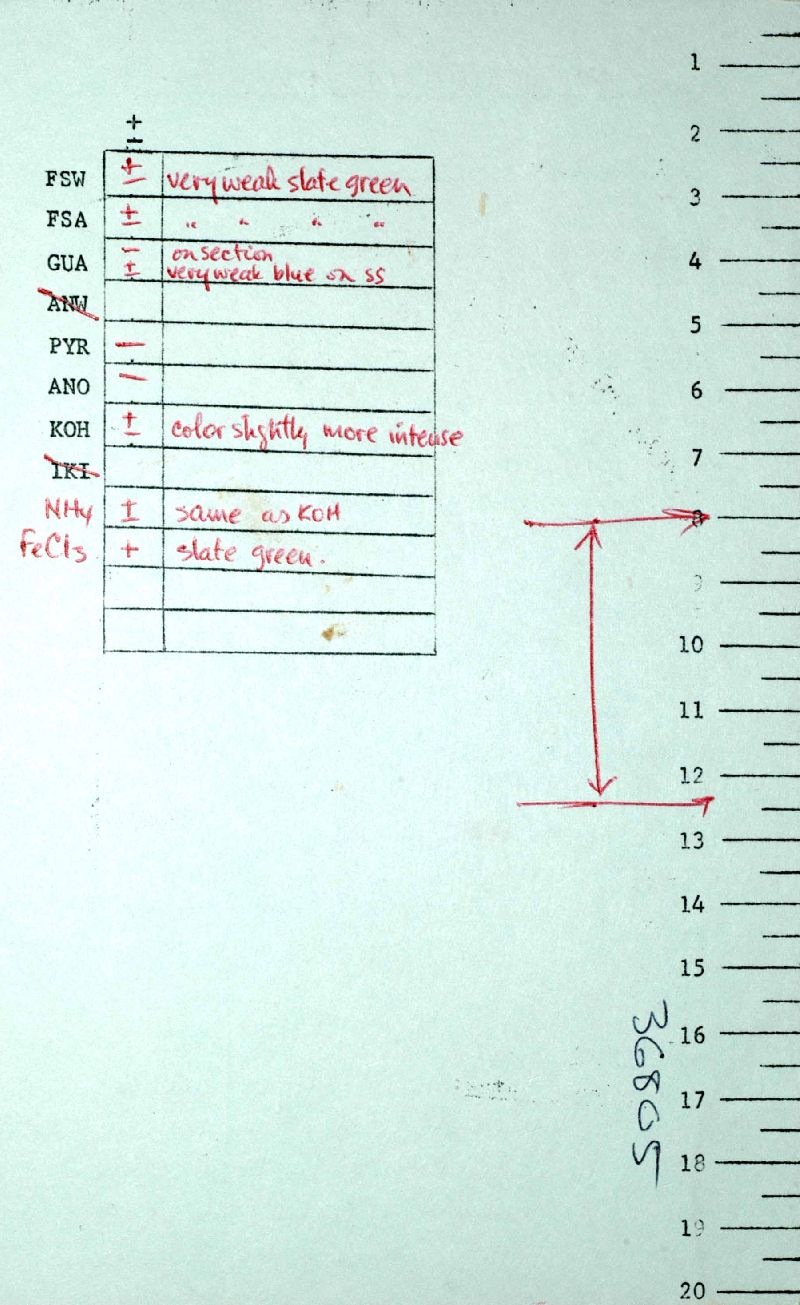 ±
FSW ± very weak slate green
FSA ± " " " "
GUA − on section
± very weak blue on SS
ANW
PYR −
ANO −
KOH ± color slightly more intense
IKI
NH4 ± same as KOH
FeCl3 + slate green.
1
2
3
4
5
6
7
8
9
10
11
12
13
14
15
16
17
18
19
20
36805